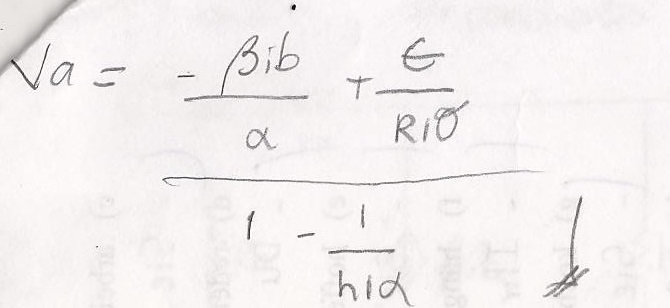 Va = (- βib/α + E/R1σ) / (1 - 1/h1α)